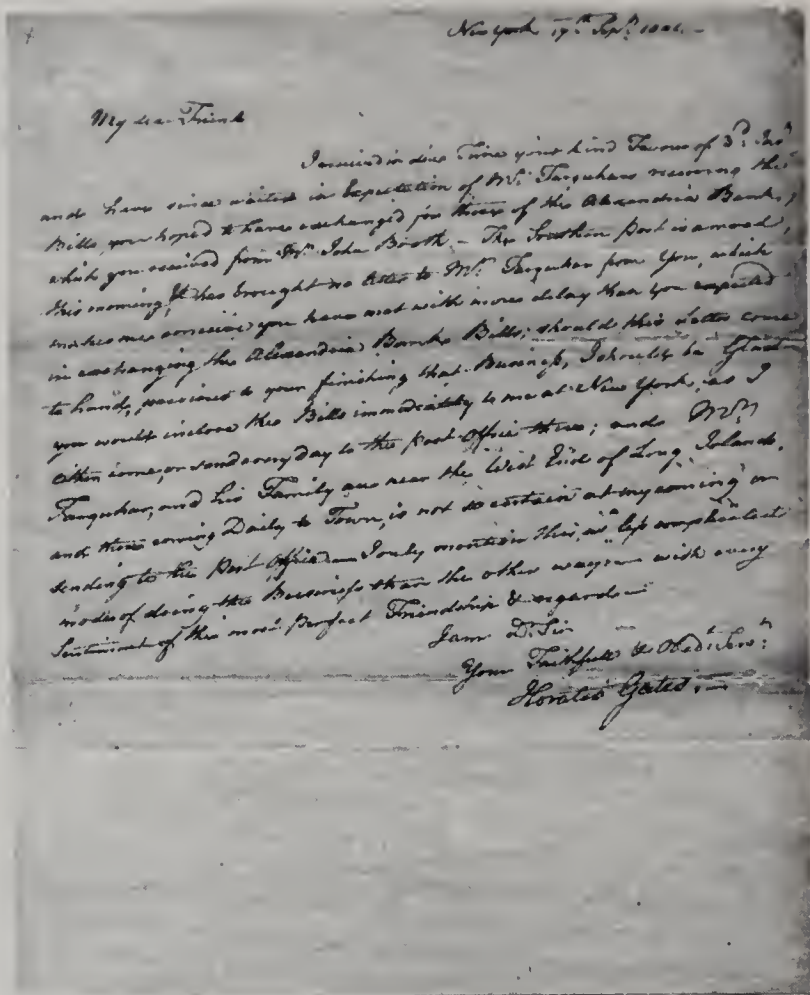 New York 17th Sept. 1801. –
My dear Friend
I received in due Time your kind Favour of 3d. Inst
and have since waited in Expectation of Mr. Farquhars receiving the
Bills, you hoped to have exchanged for those of the Alexandria Banks,
which you received from Mr. John Booth. – The Southern Post is arrived,
this morning, It has brought no letter to Mr. Farquhar from You, which
makes me conceive you have met with more delay than you expected
in exchanging the Alexandria Banks Bills; should this Letter come
to hand, previous to your finishing that Business, I should be Glad
you would inclose the Bills immediately to me at New York, as I
either come, or send every day to the Post Office there; and Mr.
Farquhar, and his Family are near the West End of Long Island,
and their coming Daily to Town, is not so certain as my coming or
sending to the Post Office – I only mention this, as less complicated
modes of doing the Business than the other ways – with every
Sentiment of the most perfect Friendship & regard –
I am Dr. Sir –
Your Faithfull & Obedt. Servt:
Horatio Gates. –